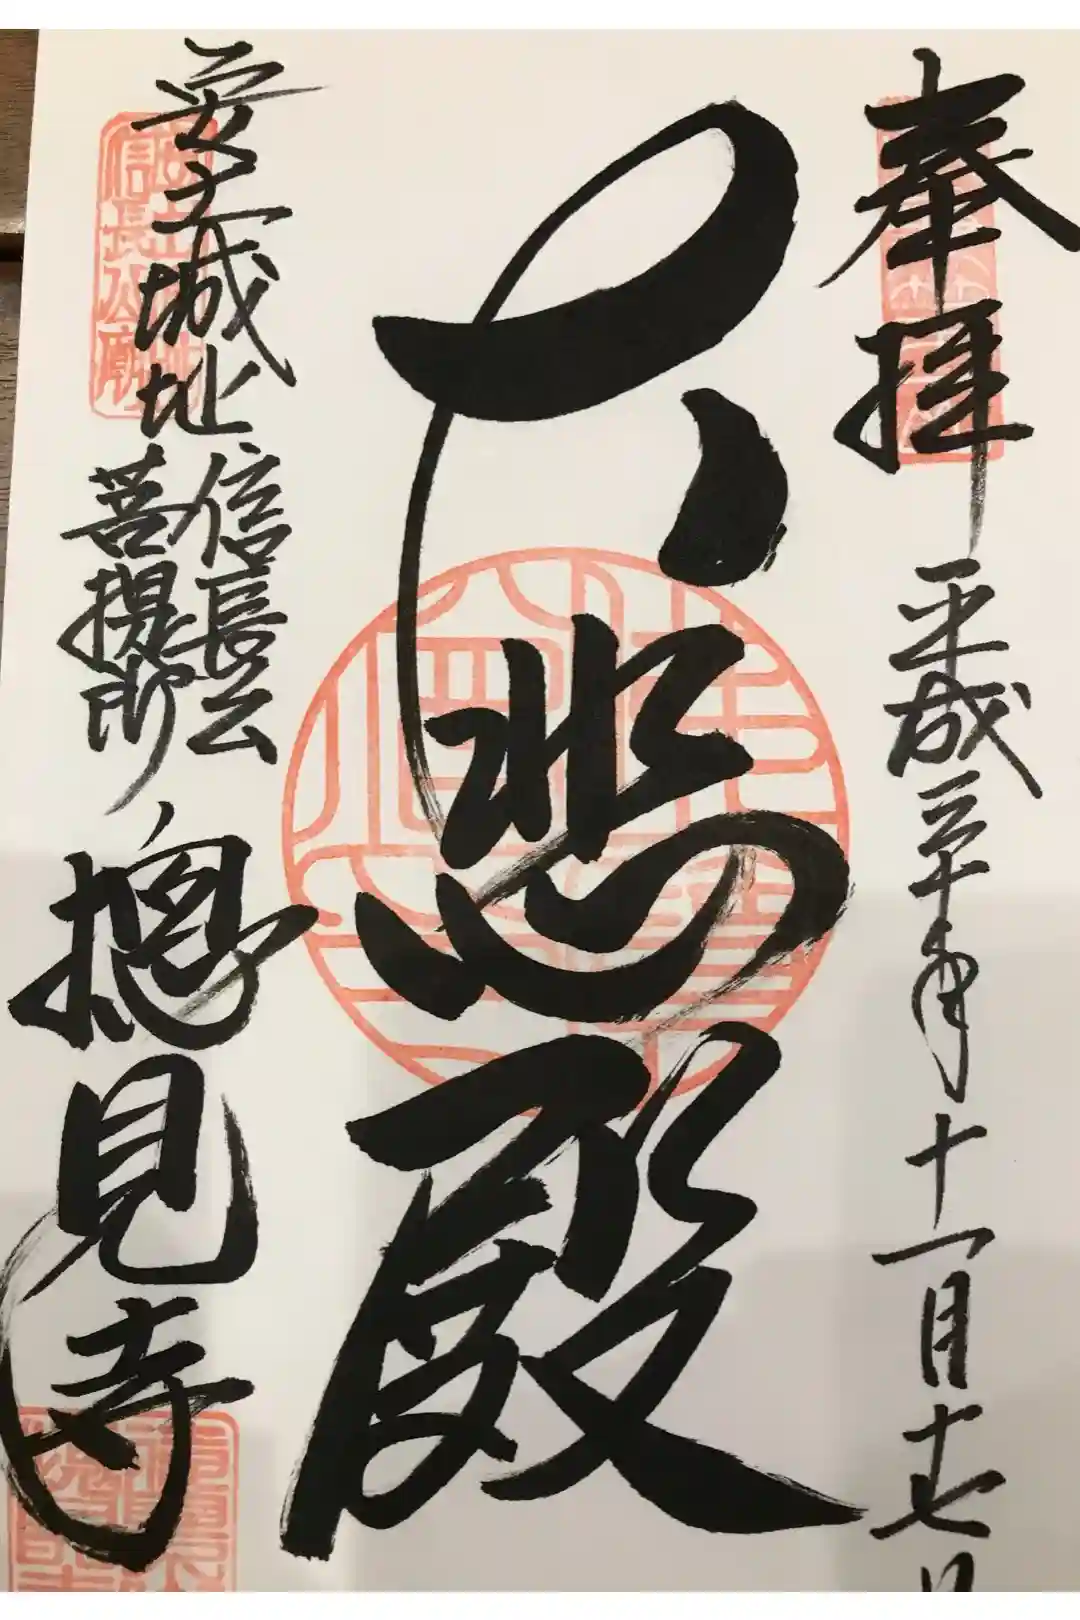 奉拝
平成三十年十一月十七日
大悲殿
安土城址
信長公
菩提所
摠見寺
信長公廟